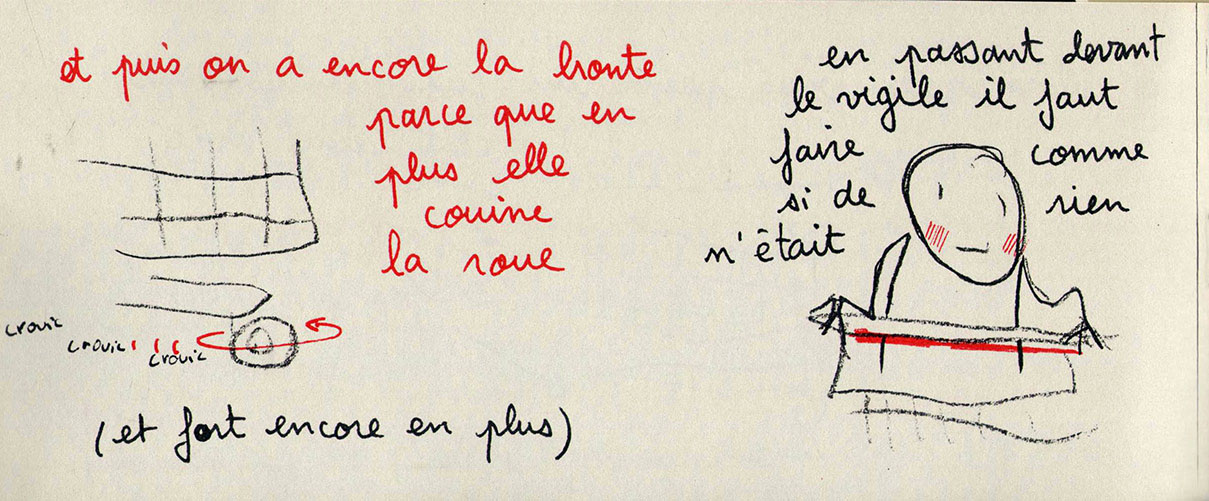 et puis on a encore la honte
parce que en
plus elle
couine
la roue
crouic
crouic
crouic
(et fort encore en plus)
en passant devant
le vigile il faut
faire comme
si de rien
n'était